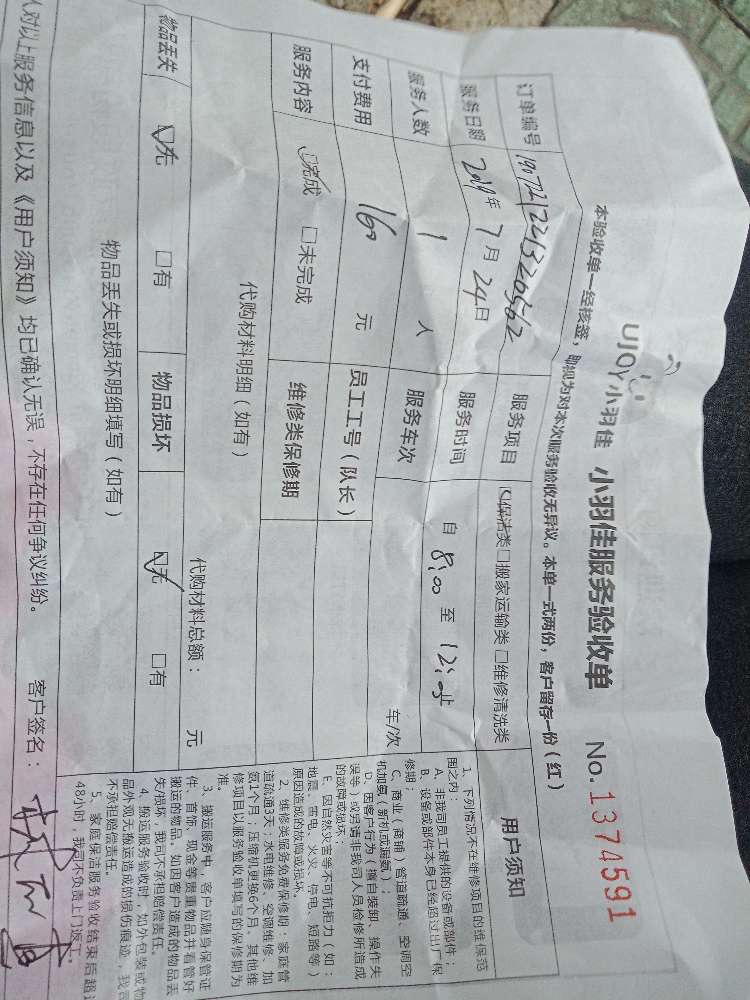 UJOY小羽佳 小羽佳服务验收单 No.1374591
本验收单一经核签，即视为对本次服务验收无异议。本单一式两份，客户留存一份（红）
订单编号 服务项目 ☑保洁类□搬家运输类□维修清洗类
服务日期 2019年7月24日 服务时间 自 8:00 至 12:00 止
服务人数 1 人 服务车次 车/次
支付费用 160 元 员工工号（队长）
服务内容 ☑完成 □未完成 维修类保修期
代购材料明细（如有）
代购材料总额： 元
物品丢失 ☑无 □有 物品损坏 ☑无 □有
物品丢失或损坏明细填写（如有）
人对以上服务信息以及《用户须知》均已确认无误，不存在任何争议纠纷。 客户签名：
用户须知
1、下列情况不在维修项目的维保范
围之内：
A、非我司员工提供的设备或部件；
B、设备或部件本身已经超过出厂保
修期；
C、商业（商铺）管道疏通、空调空
机加氨（新机或漏氨）；
D、因客户行为（擅自装卸、操作失
误等）或另请非我司人员检修所造成
的故障或损坏；
E、因自然灾害等不可抗拒力（如：
地震、雷电、火灾、停电、短路等）
原因造成的故障或损坏。
2、维修类服务免费保修期：家庭管
道疏通3天；水电维修、空调维修、加
氨1个月；压缩机更换6个月，其他维
修项目以服务验收单填写的保修期为
准。
3、搬运服务中，客户应随身保管证
件、首饰、现金等贵重物品并看管好
搬运的物品。如因客户造成的物品丢
失/损坏，我司不承担赔偿责任。
4、搬运服务验收时，如外包装或物
品外观无搬运造成的损伤痕迹，我司
不承担赔偿责任。
5、家庭保洁服务验收结束后超过
48小时，我司不负责上门返工。